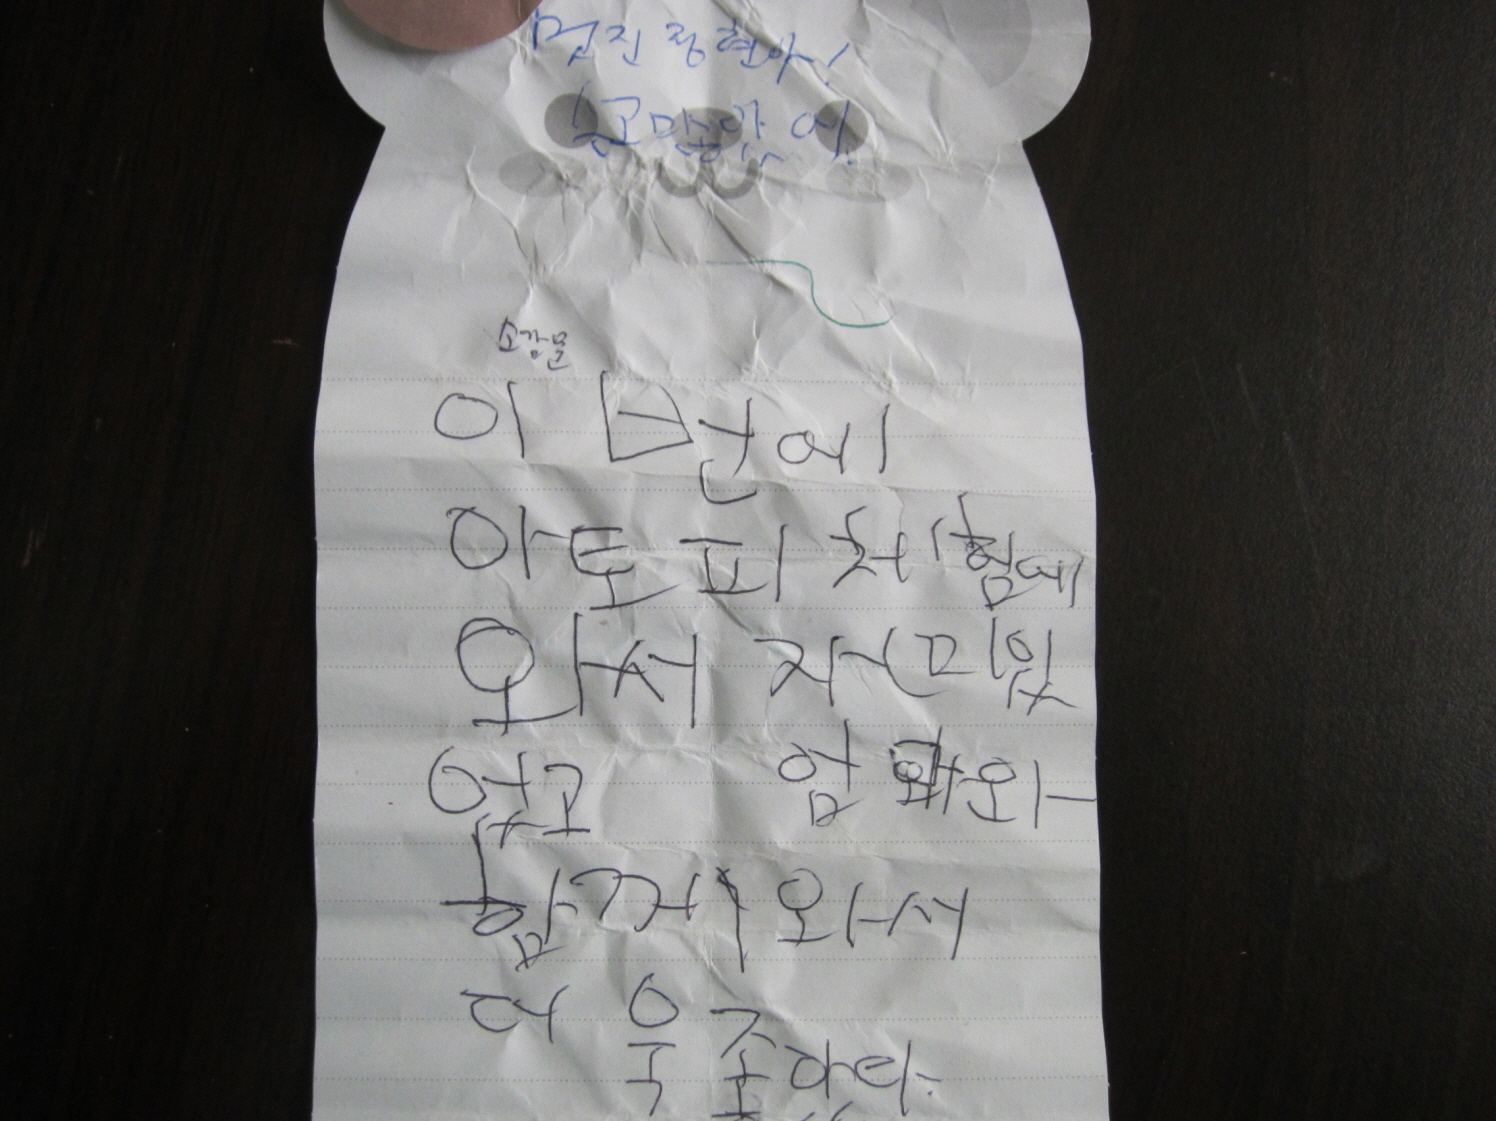 멋진 정현아!
소감문
이번에
아토피 체험에
와서 재미있
었고 엄마와
함께 와서
더욱 좋았다.